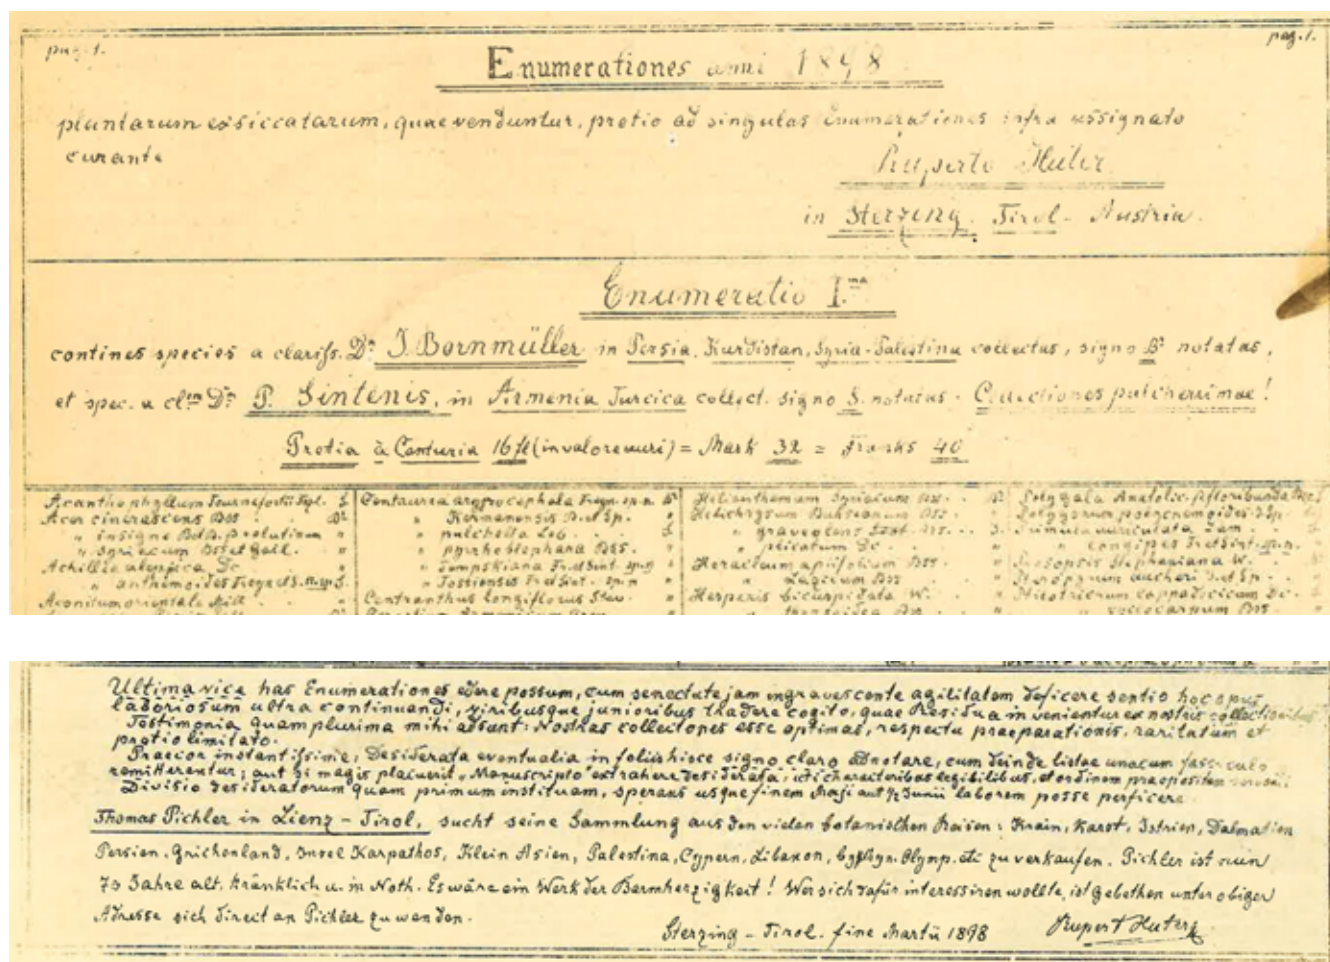 pag. 1.
pag. 1.
Enumerationes anni 1898
plantarum exsiccatarum, quae venduntur, pretio ad singulas Enumerationes infra assignato
curante
Ruperto Huter
in Sterzing. Tirol - Austria.
Enumeratio I.ma
contines species a clariss. Dr. J. Bornmüller in Persia, Kurdistan, Syria-Palestina collectas, signo Br notatas,
et spec. a cl.m Dr. P. Sintenis, in Armenia Turcica collect. signo S. notatas. Collectiones pulcherrimae!
Pretia à Centuria 16 fl (in valore auri) = Mark 32 = Franks 40
Acanthophyllum Tournefortii
Acer cinerascens Bss
" insigne
" syriacum Bss et Gaill.
Achillea aleppica Dc
"
Aconitum orientale Mill
Centaurea argyrocephala Freyn. sp. n.
" Kermanensis B. et Sp.
" pulchella Led.
" pyrrhoblephara Bss.
" Tempskiana Fr. et Sint. sp. n
" Tossiensis Fr. et Sint. sp. n
Centranthus longiflorus Stev.
Helianthemum Syriacum
Helichrysum Buhseanum Bss
" graveolens Bss.
" plicatum Dc
Heracleum apiifolium Bss
" Lazicum Bss
Hesperis bicuspidata W.
" Bss
Polygala Anatolic.
Polygonum polycnemoides J. Sp.
Primula auriculata Lam.
" longipes Fr et Sint. sp. n.
Prosopis Stephaniana W.
Pteropyrum aucheri J. et Sp.
cappadocicum Dc.
" Bss
Ultima vice has Enumerationes edere possum, cum senectute jam ingravescente agilitatem deficere sentio hoc opus
laboriosum ultra continuandi, viribusque junioribus tradere cogito, quae Residua invenientur ex nostris collectionibus
Testimonia quam plurima mihi adsunt: Nostras collectones esse optimas, respectu praeparationis, raritatum et
pretio limitato.
Precor instantissime, Desiderata eventualia in foliis hisce signo claro adnotare, cum deinde listae unacum fasciculo
remitterentur; aut si magis placuerit, Manuscripto extrahere desiderata, characteribus legibilibus, et ordinem praepositam
Divisio desideratorum quam primum instituam, sperans usque finem Maji aut ½ Junii laborem posse perficere.
Thomas Pichler in Lienz - Tirol, sucht seine Sammlung aus den vielen botanischen Reisen: Krain, Karst, Istrien, Dalmatien
Persien, Grichenland, Insel Karpathos, Klein Asien, Palestina, Cypern, Libanon, Olymp. etc zu verkaufen. Pichler ist nun
73 Jahre alt. kränklich u. in Noth. Es wäre ein Werk der Barmherzigkeit! Wer sich dafür interessiren wollte, ist gebethen unter obiger
Adresse sich direct an Pichler zu wenden.
Sterzing - Tirol. fine Martii 1898 Rupert Huter